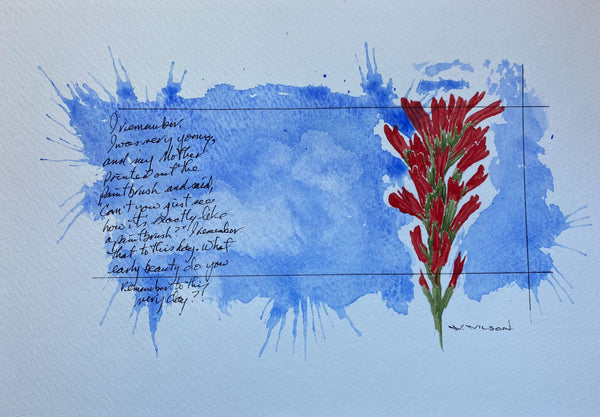 I remember,
I was very young,
and my Mother
pointed out the
paintbrush and said,
Can't you just see
how it's exactly like
a paintbrush? I remember
that to this day. What
early beauty do you
remember to this
very day?!
W. WILSON